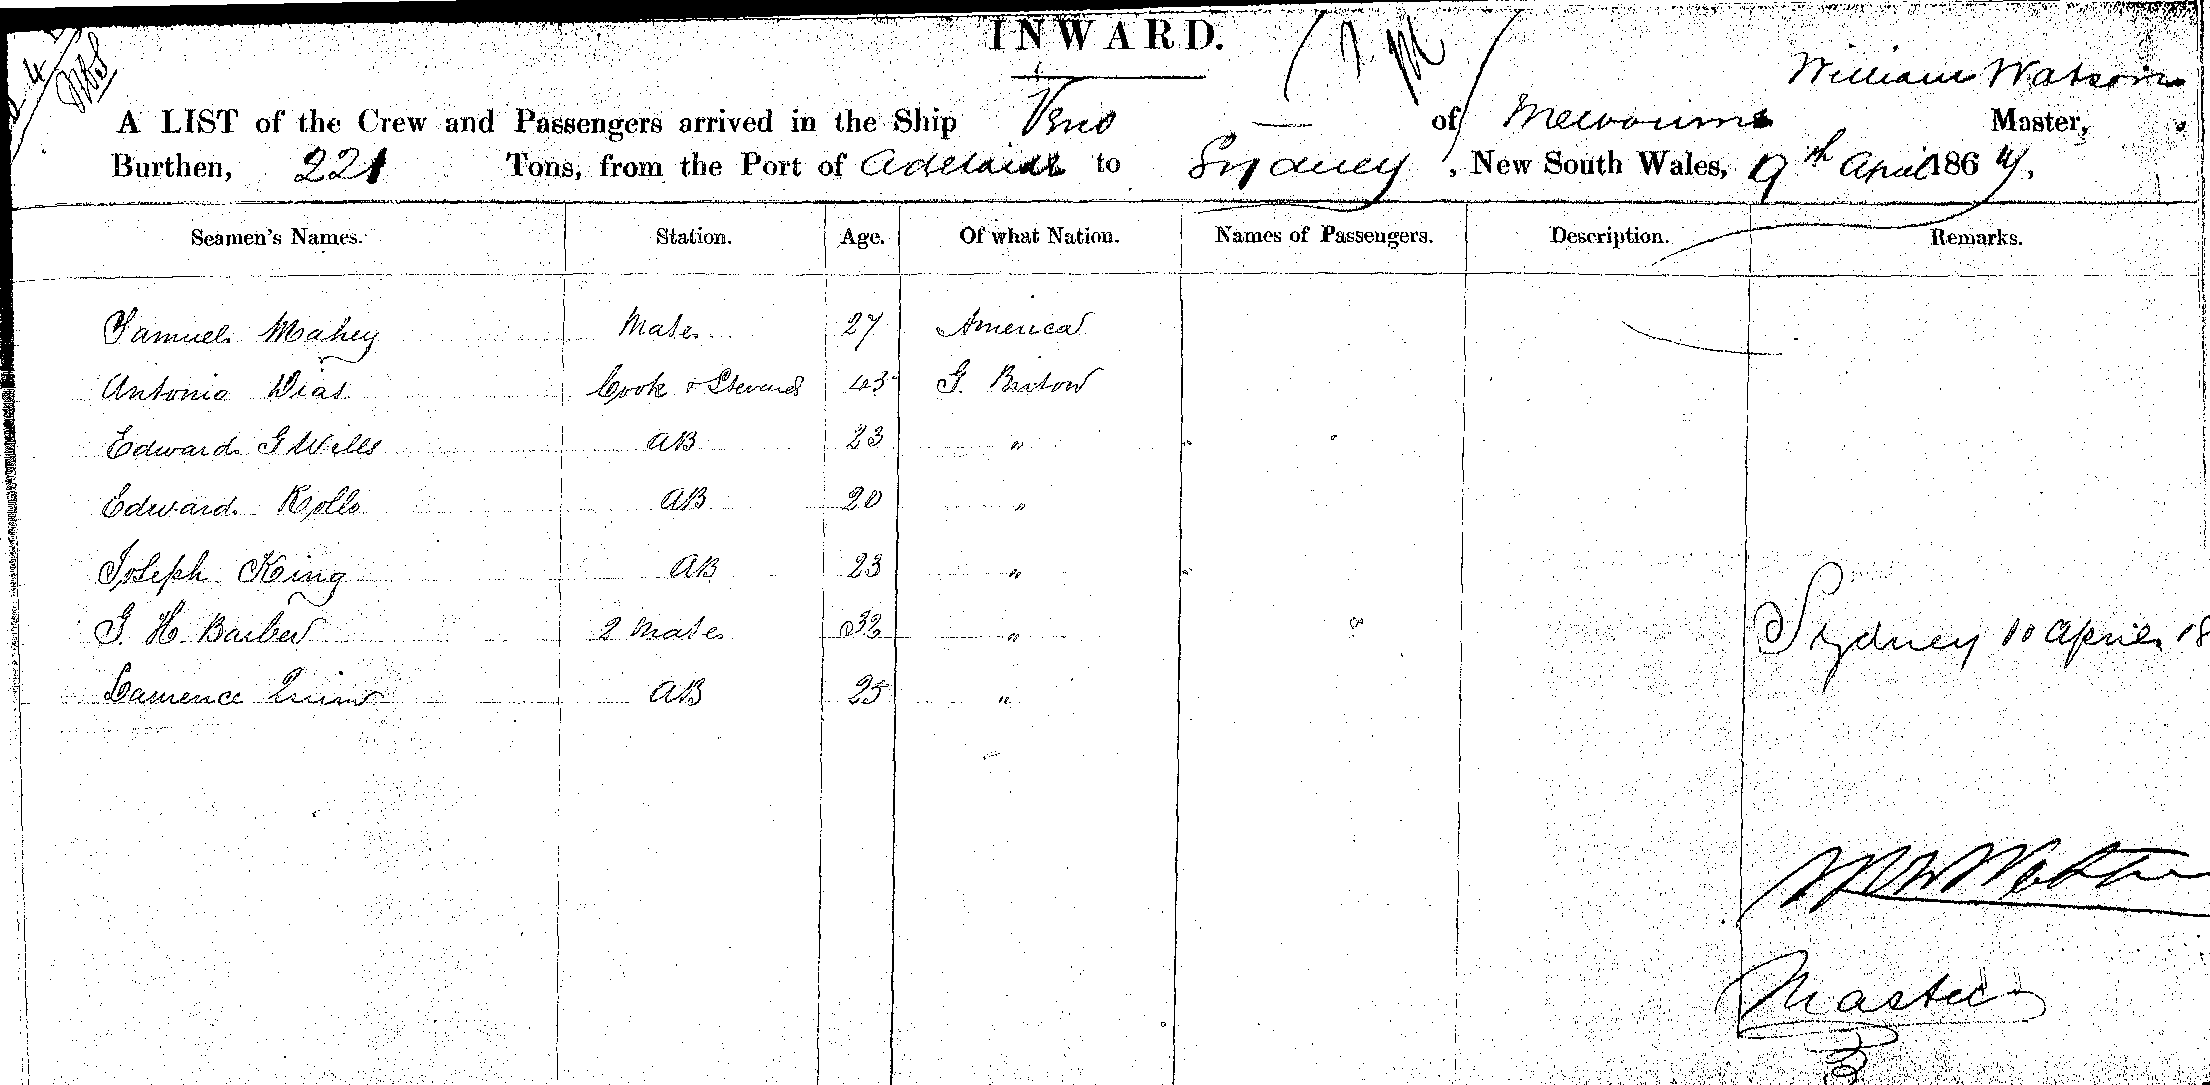 INWARD.
William Watson
A LIST of the Crew and Passengers arrived in the Ship — of Melbourne Master,
Burthen, 221 Tons, from the Port of Adelaide to Sydney, New South Wales, 9th April 1864.
Seamen's Names. Station. Age. Of what Nation. Names of Passengers. Description. Remarks.
Samuel Mahey Mate 27 America
Antonio Dias Cook & Steward 43 G. Britain
Edward G Wills AB 23 "
Edward Rollo AB 20 "
Joseph King AB 23 "
G. H. Barber 2 Mate 32 "
Sydney 10 April 18
Laurence Quinn AB 25 "
Master